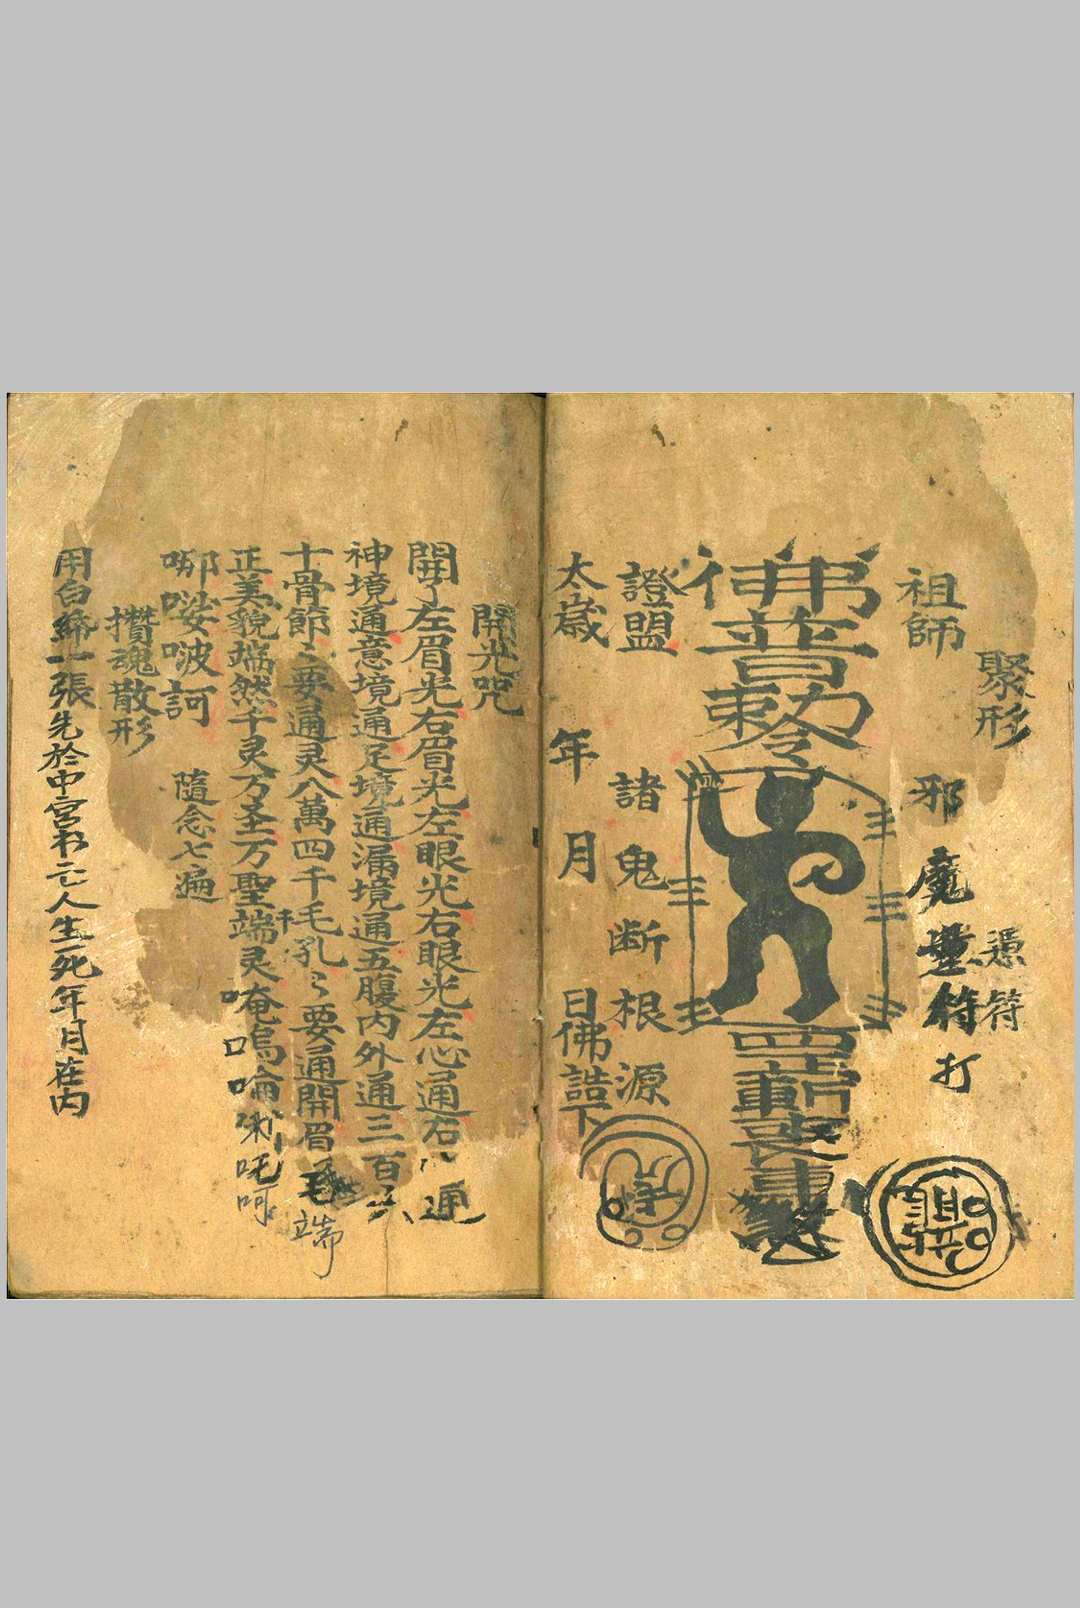 聚形
憑符
祖師
邪魔
符打
佛普敕令
證盟
諸鬼断根源
太歲 年 月 日佛誥下
開光咒
開了左眉光右眉光左眼光右眼光左心通右
通
神境通意境通足境通漏境通五臓内外通三百六
十骨節々要通灵八萬四千毛孔々要通開眉毛
端
正美貌端然千灵万圣万聖端灵唵
哪娑啵訶 隨念七遍
攢魂散形
用白綿一張先於中宮書亡人生死年月在内